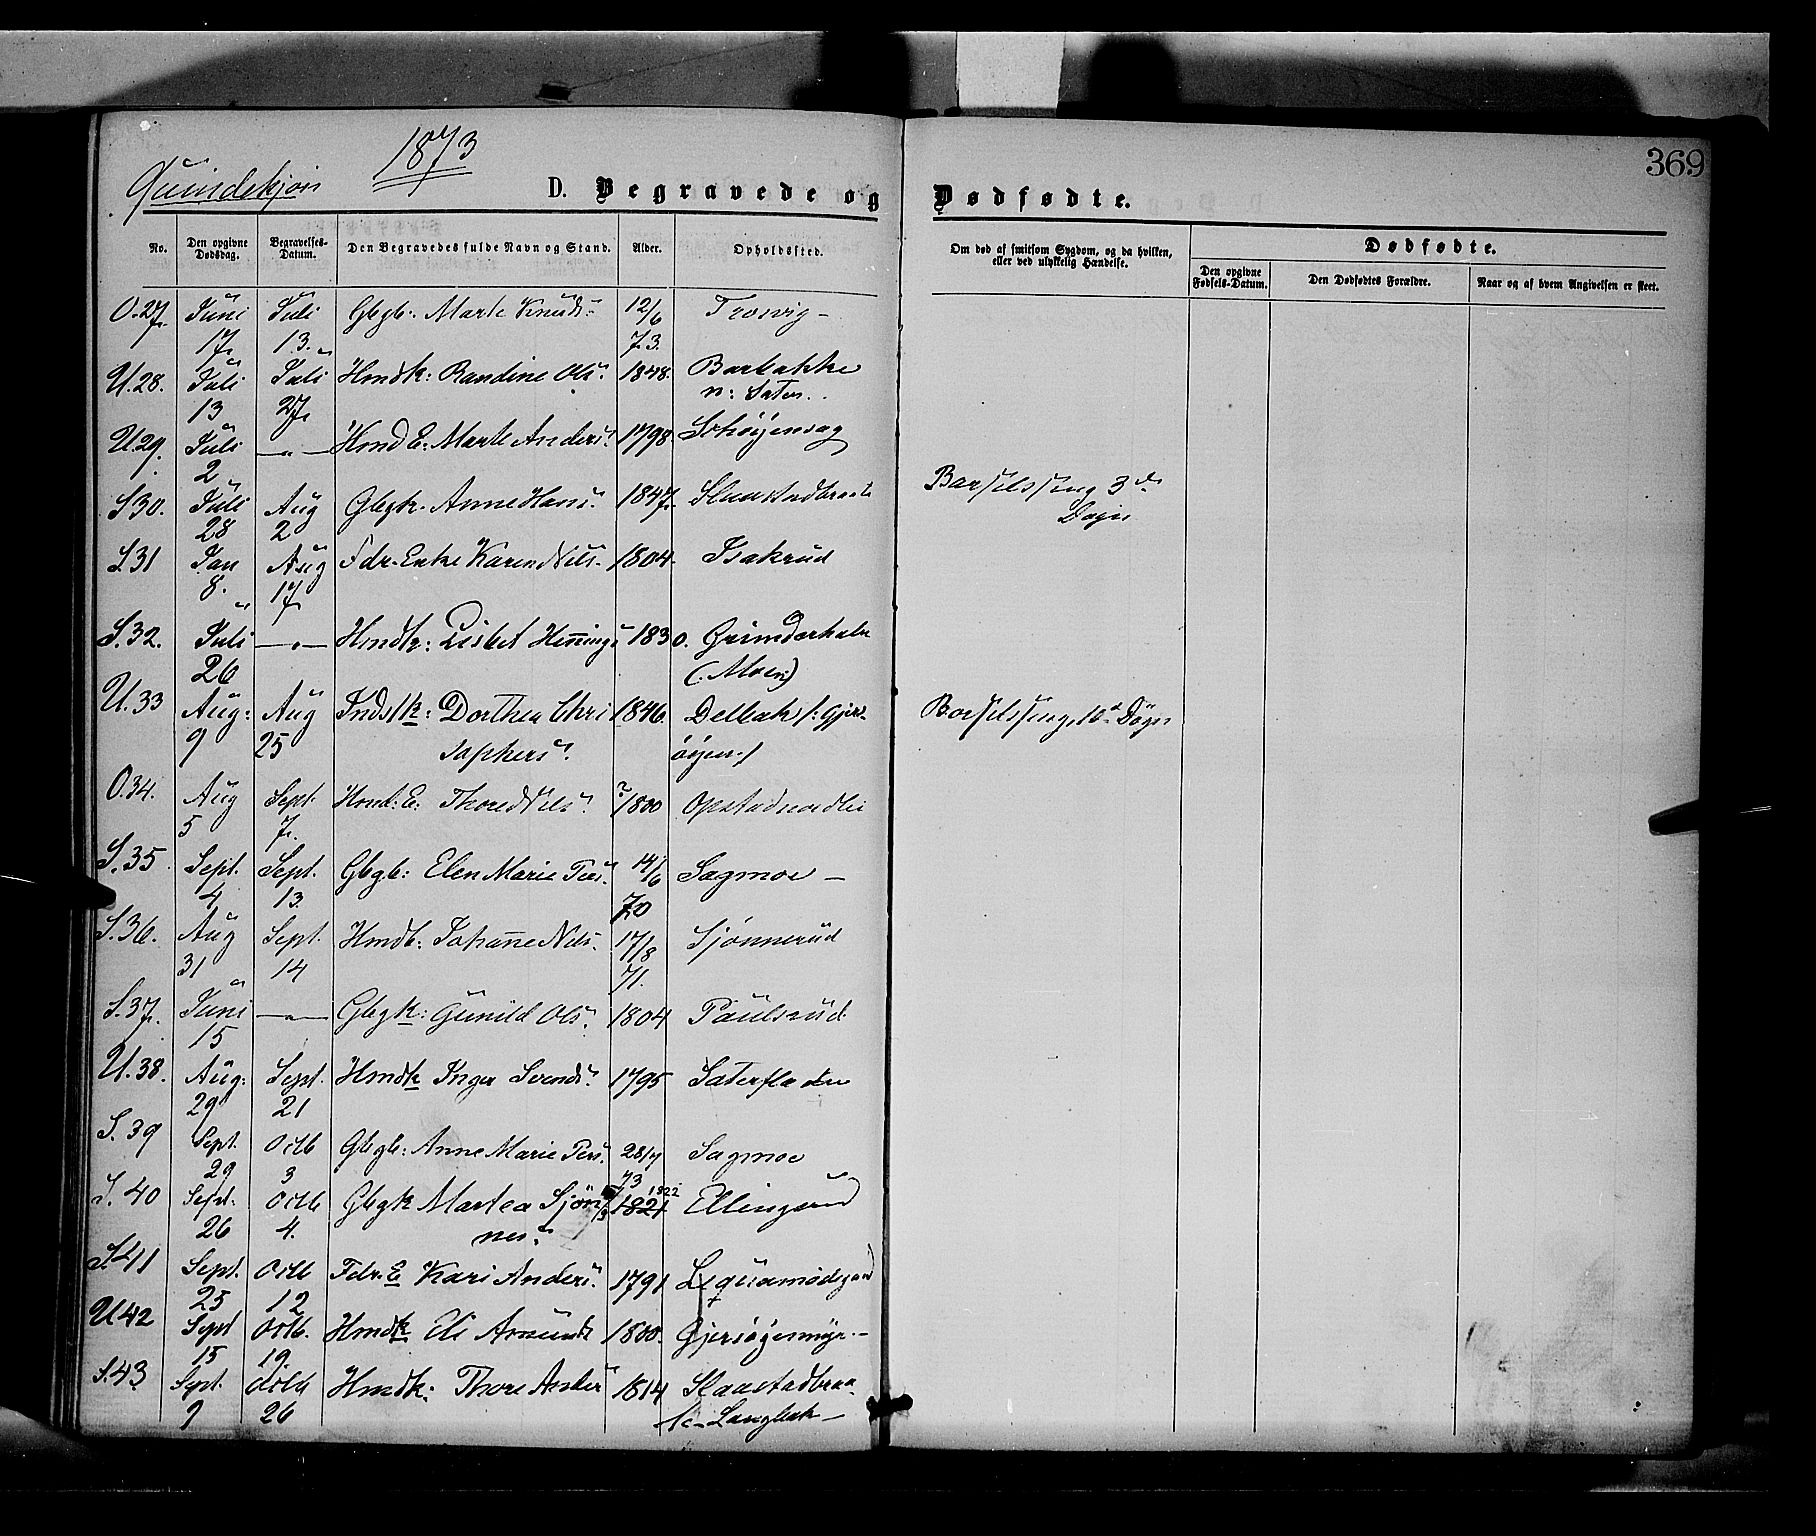 369
1873
Quindekjøn
D. Begravede og Dødfødte.
No. Den opgivne Dødsdag. Begravelses-Datum. Den Begravedes fulde Navn og Stand. Alder. Opholdssted. Om død af smitsom Sygdom, og da hvilken, eller ved ulykkelig Hændelse. Dødfødte.
Den opgivne Fødsels-Datum. Den Dødfødtes Forældre. Naar og af hvem Angivelsen er skeet.
O.27. Juni Juli Gbgb. Marte Knuds 12/6
17. 13. 73.
U.28. Juli Juli Hmdk: Randine Ols. 1848. Barbakke
13 27. n: Sater.
U.29. Juli —"— Hmd E: Marte Anders. 1798.
2
S30. Juli Aug Gbgk. Anne Hans. 1847. Slaastadbraate Barselseng 3de
28 2 Døgn
S31 Jan Aug Fdr. Enke Karen Nils. 1804. Isakrud
8. 17.
S.32. Juli —"— Hmdk: Lisbet Hennings 1830.
26 (:Moen)
U.33 Aug: Aug Indstk: Dorthea Chri 1846. Delbak /: Gjers Barselseng, 10de Døgn
9 25 stophers. øien./
O.34. Aug Sept. Hmd: E: Thore Nils. 1800 Opstadnordlie
5 7.
S.35 Sept. Sept. Gbgb: Elen Marie Pers. 14/6 Sagmoe —
4 13. 70
S.36. Aug Sept. Hmdb: Johanne Nils. 17/8 Sjønnerud
31 14 71.
S.37. Juni —"— Gbgk: Gunild Ols. 1804 Paulsrud
15
U.38. Aug: Sept. Hmdk Inger Svends. 1795 Saterfladen
29 21
S.39 Sept. Octb Gbgb: Anne Marie Pers. 28/7 Sagmoe
29 3 73
S.40 Sept. Octb Gbgk Martea Sjøn 1821 1822 Ellingsrud
26 4. nes.
S.41 Sept. Octb Fdr. E Kari Anders. 1791
25 12
U42 Sept Octb. Hmdk Eli Amunds 1800. Gjersøyenmyr.-
15 19.
S.43 Sept. Octb Hmdk: Thore Anders 1814 Slaastadbraa
9 26 te- Langbak —